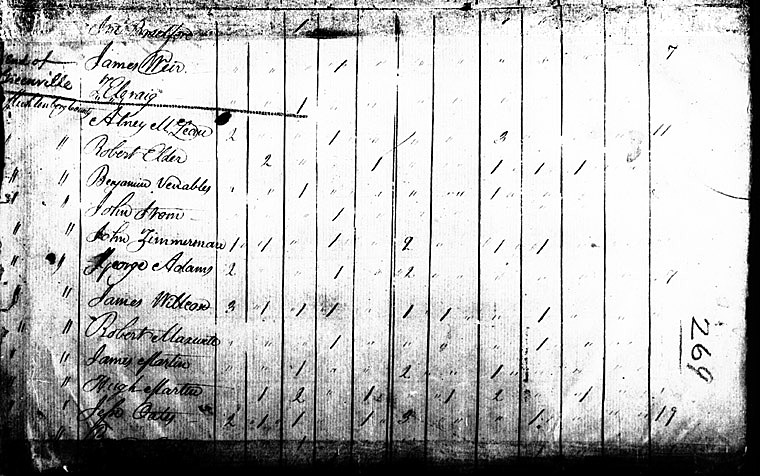 1 1
James Weir " " " 1 " " " " " " " 7
end of
Greenville
Mecklenburg County
Craig " " 1
Abney McLean 2 " " 1 " 1 " " 3 " " " 11
" Robert Elder " 2 " " 1 " " " 1 1 1
" " Benjamin Venables " " 1 " " " " " 1
" John Strom " " " 1
" " John Zimmerman 1 1 " 1 " 2 " " 1 1
" " George Adams 2 " " 1 " 2 " " " " " 7
" James Willson 3 1 1 1 " 1 1 " " 1
" " Robert Maxwell " " " 1 " " " " " 1
" " James Martin " " 1 " " 2 " " 1
" " Hugh Martin 1 2 " 1 " 1 " 2 " 1
" " John Oates 2 1 1 " 1 " " " 1 " " 19
269